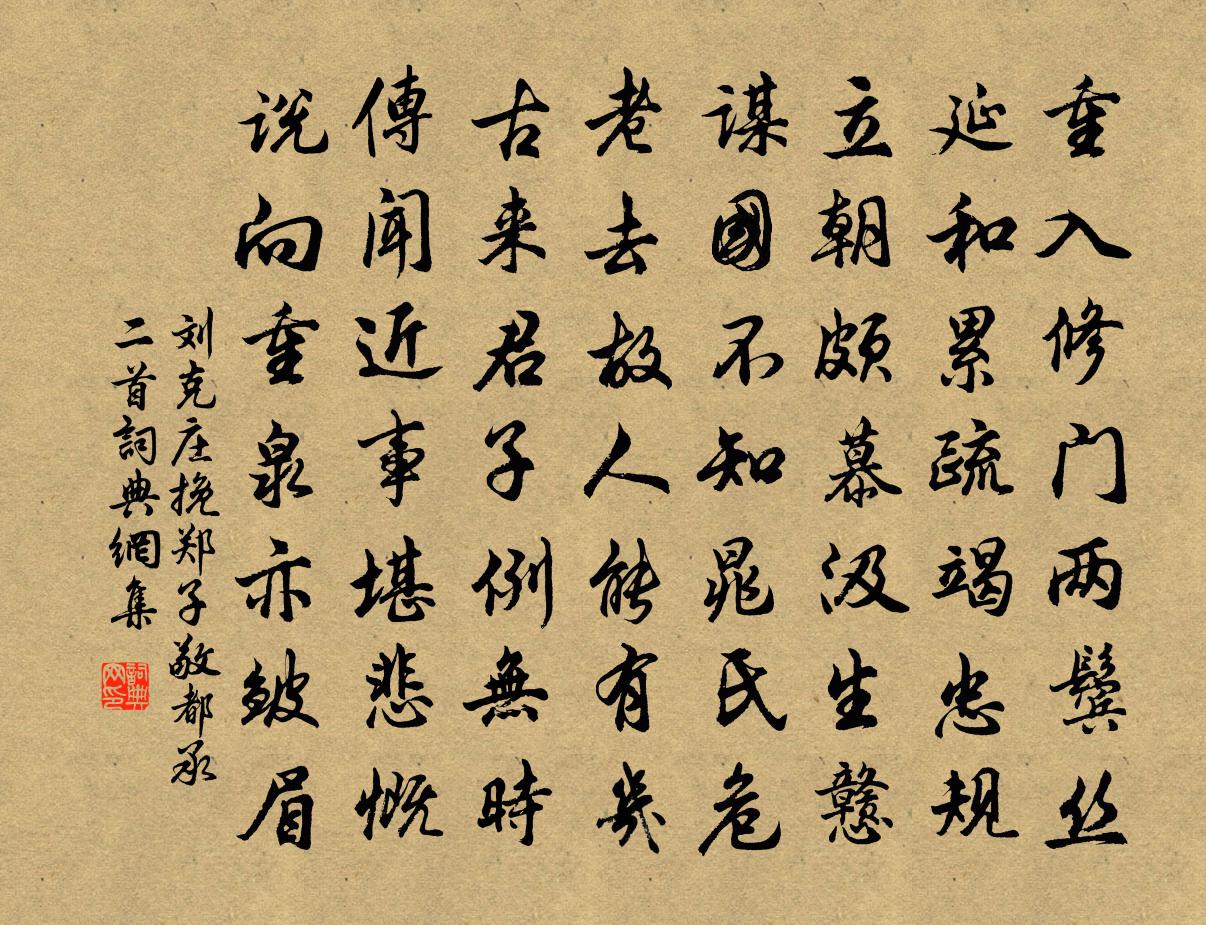 重入修门两鬓丝
延和累疏竭忠规
立朝颇慕汲生戆
谋國不知晁氏危
老去故人能有幾
古来君子例無時
傳闻近事堪悲慨
说向重泉亦皱眉
刘克庄挽郑子敬都承
二首詞典網集
詞典
网印